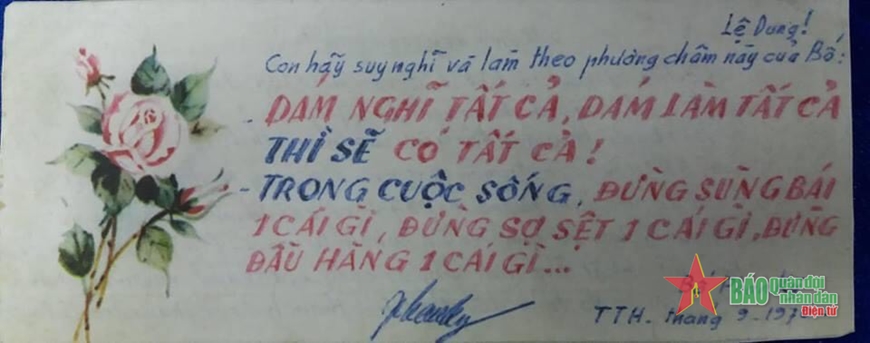 Lệ Dung!
Con hãy suy nghĩ và làm theo phương châm này của Bố:
- DÁM NGHĨ TẤT CẢ, DÁM LÀM TẤT CẢ
THÌ SẼ CÓ TẤT CẢ!
- TRONG CUỘC SỐNG, ĐỪNG SÙNG BÁI
1 CÁI GÌ, ĐỪNG SỢ SỆT 1 CÁI GÌ, ĐỪNG
ĐẦU HÀNG 1 CÁI GÌ...
BÁO quân đội
nhân dân
Điện tử
TTH. tháng 9-197